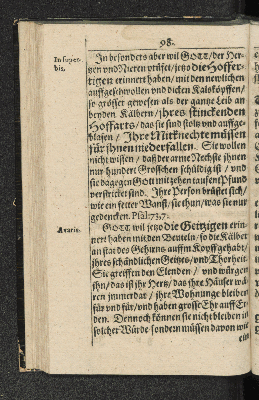 98.
In super-
bis.
In besonders aber wil GOTT/ der Her-
tzen vnd Nieren prüfet/ jetzo die Hoffer-
tigen erinnert haben/ mit den newlichen
auffgeschwollen vnd dicken Kalsköpffen/
so grösser gewesen als der gantze Leib an
beyden Kälbern/ jhres stinckenden
Hoffarts/ das sie sind stoltz vnd auffge-
blasen/ Jhre Mitknechte müssen
für jhnen niederfallen. Sie wollen
nicht wissen/ daß der arme Nechste jhnen
nur hundert Groschen schüldig ist/ vnd
sie dagegen Gott mit zehen tausent Pfund
verstricket sind. Jhre Person brüstet sich/
wie ein fetter Wanst/ sie thun/ was sie nur
gedencken. Psal. 73,7.
Avaris.
GOTT wil jetzo die Geitzigen erin-
nert haben mit den Beuteln/ so die Kälber
an stat des Gehirns auffm Kopff gehabt/
jhres schändlichen Geitzes/ vnd Thorheit.
Sie greiffen den Elenden/ vnd würgen
jhn/ das ist jhr Hertz/ das jhre Häuser wä-
ren jmmerdar/ jhre Wohnunge bleiben
für vnd für/ vnd haben grosse Ehr auff Er-
den. Dennoch können sie nicht bleiben in
solcher Würde/ sondern müssen davon wie
ein